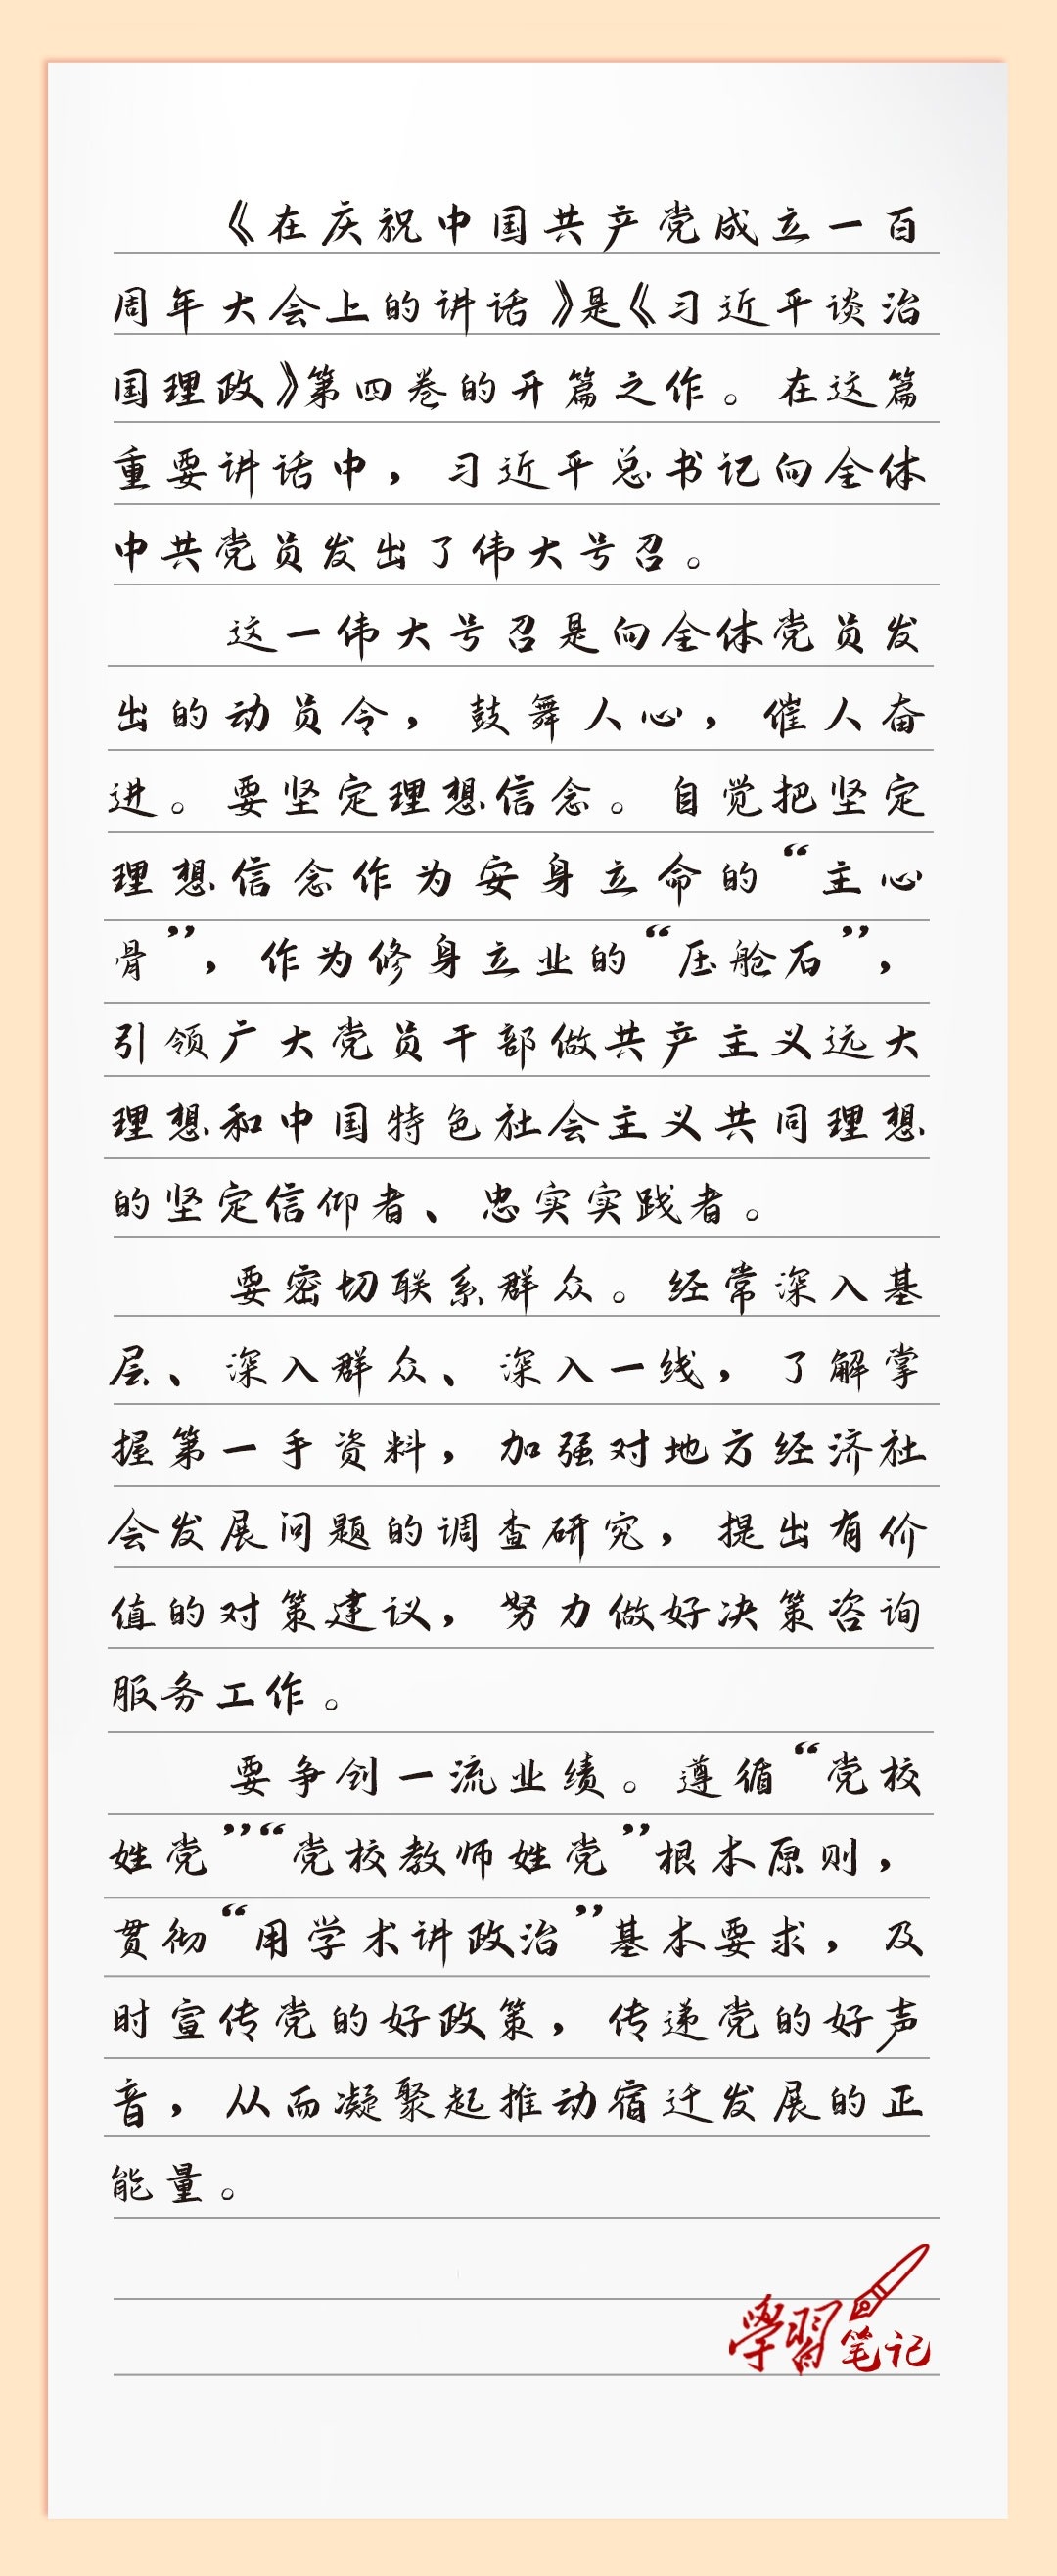 《在庆祝中国共产党成立一百
周年大会上的讲话》是《习近平谈治
国理政》第四卷的开篇之作。在这篇
重要讲话中，习近平总书记向全体
中共党员发出了伟大号召。
这一伟大号召是向全体党员发
出的动员令，鼓舞人心，催人奋
进。要坚定理想信念。自觉把坚定
理想信念作为安身立命的“主心
骨”，作为修身立业的“压舱石”，
引领广大党员干部做共产主义远大
理想和中国特色社会主义共同理想
的坚定信仰者、忠实实践者。
要密切联系群众。经常深入基
层、深入群众、深入一线，了解掌
握第一手资料，加强对地方经济社
会发展问题的调查研究，提出有价
值的对策建议，努力做好决策咨询
服务工作。
要争创一流业绩。遵循“党校
姓党”“党校教师姓党”根本原则，
贯彻“用学术讲政治”基本要求，及
时宣传党的好政策，传递党的好声
音，从而凝聚起推动宿迁发展的正
能量。
學習笔记